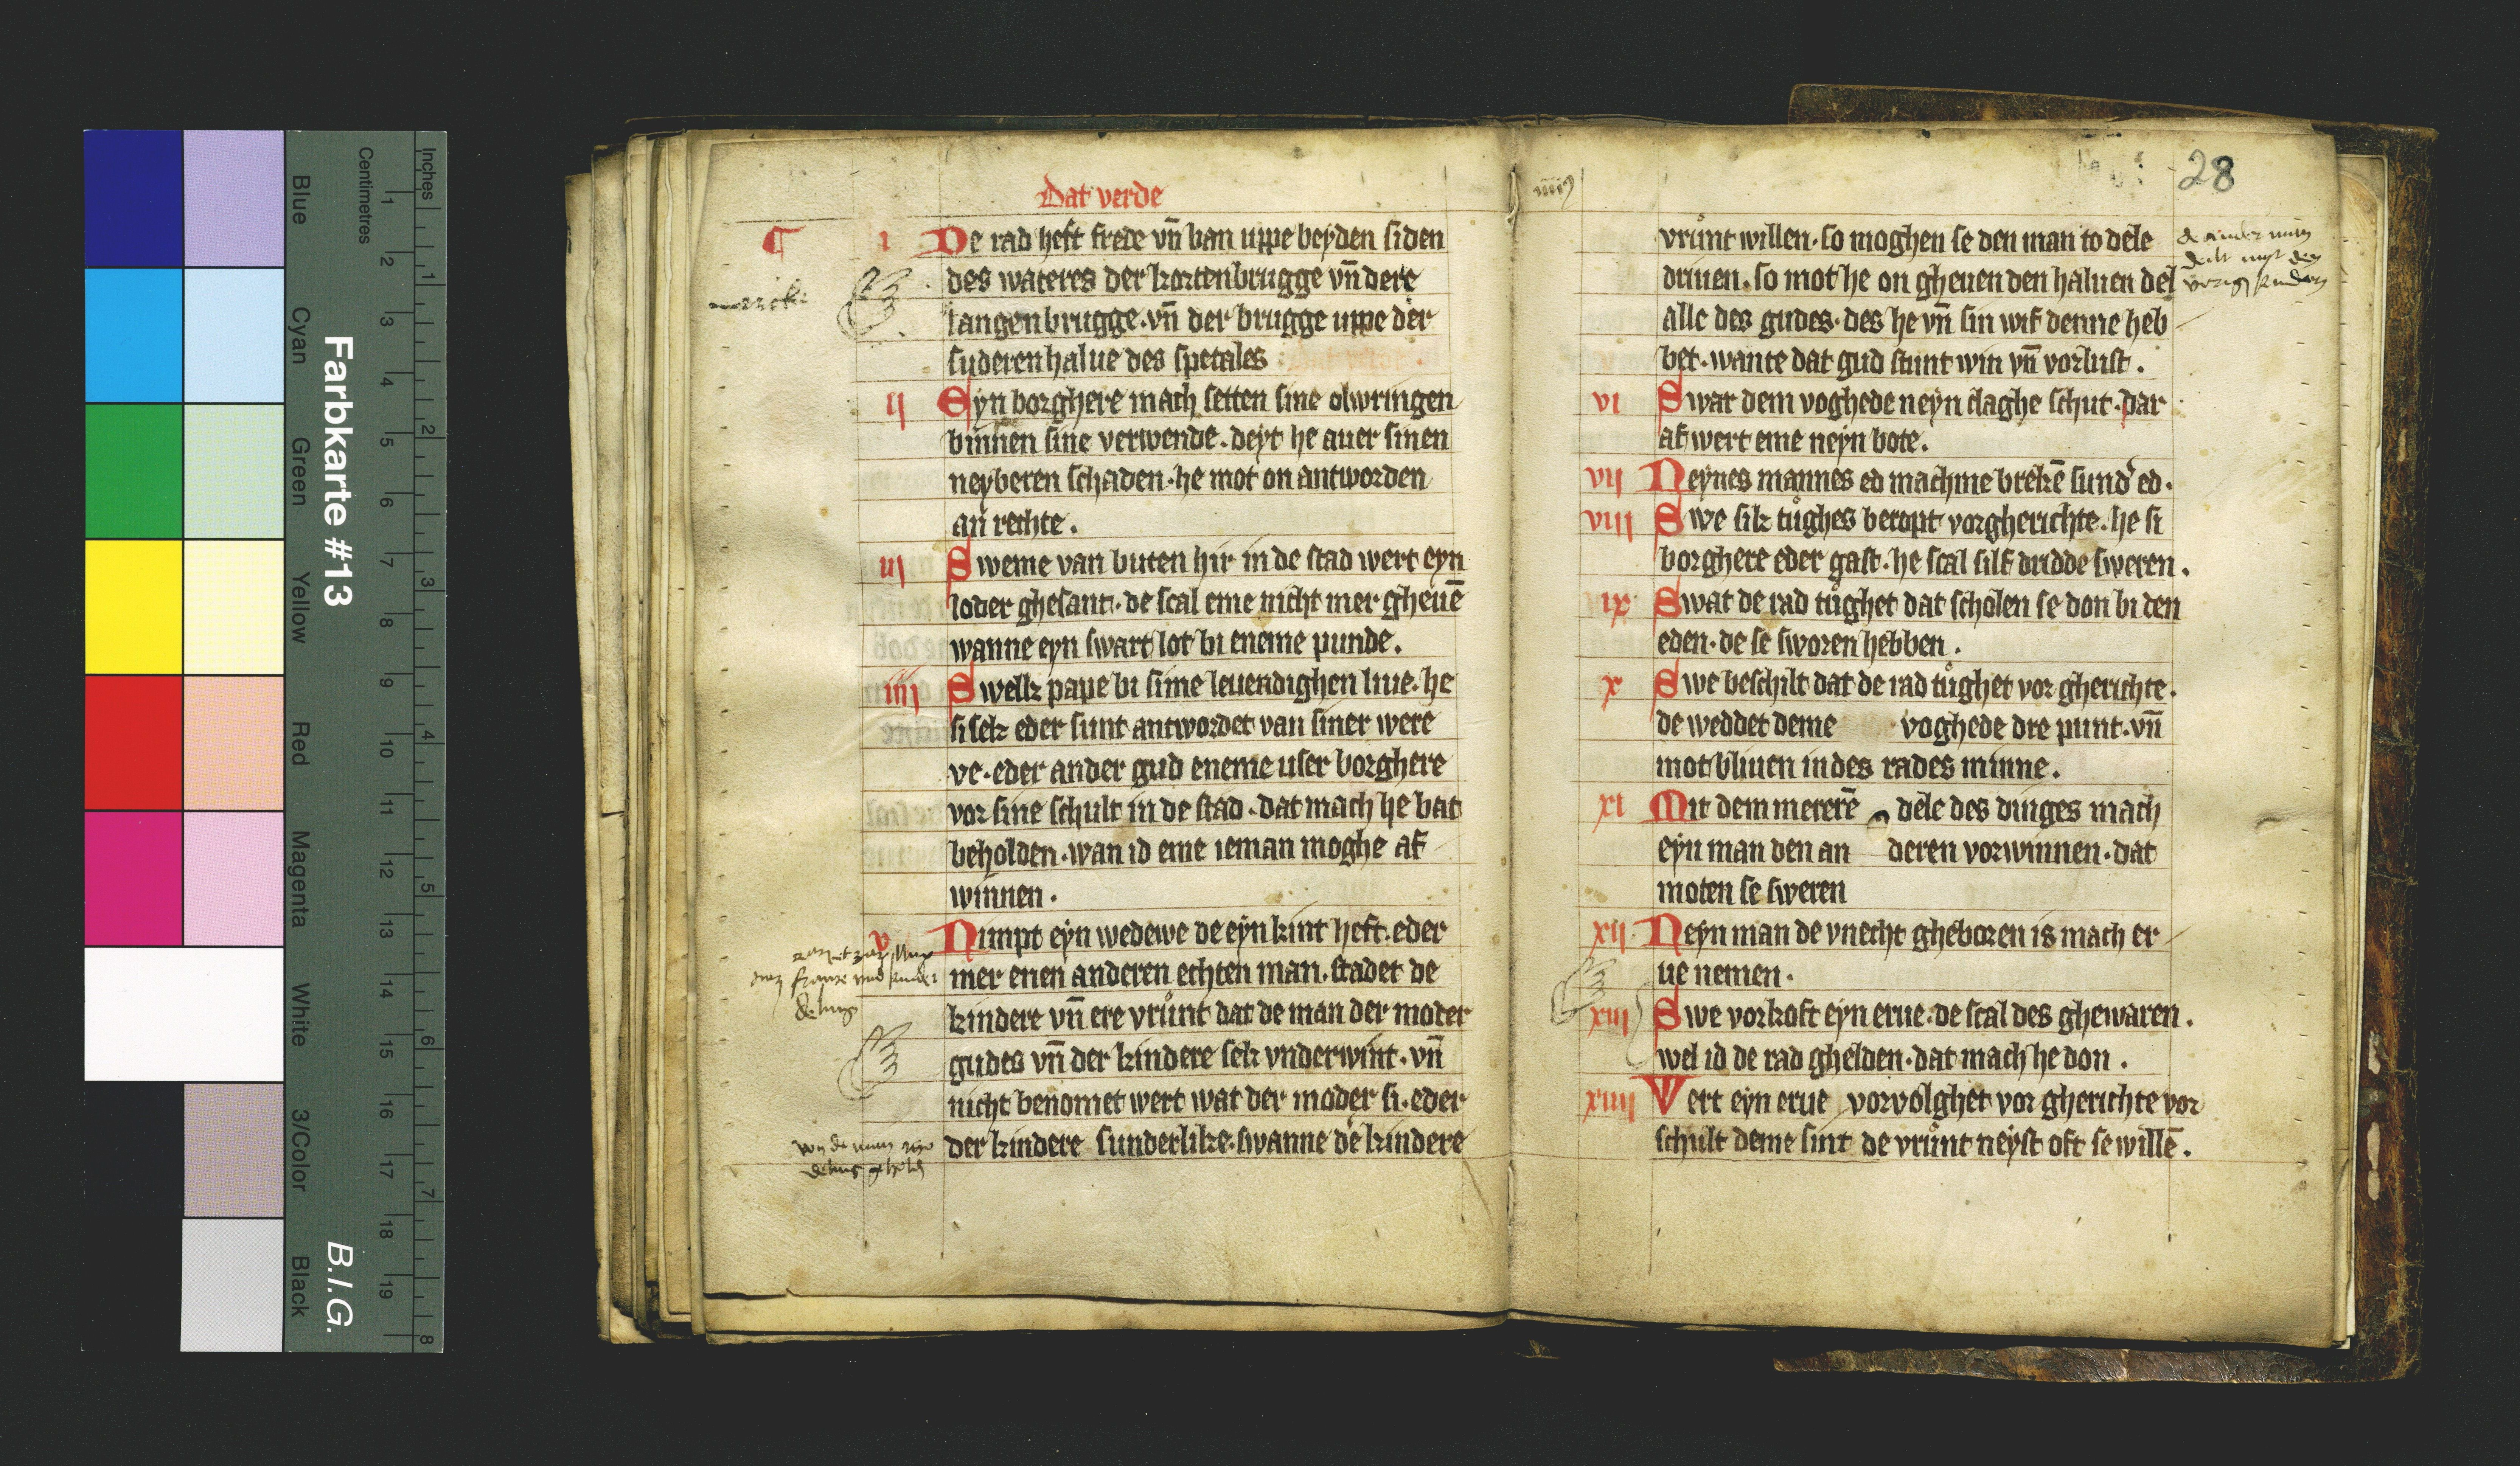 Dat verde
¶ i De rad heft frede vn̄ ban uppe beyden siden
des wateres der kortenbrugge vn̄ dere
langenbrugge. vn̄ der brugge uppe der
suderenhalue des spetales
ii Eyn borghere mach setten sine olwringen
binnen sine verwende. deyt he auer sinen
neyberen schaden. he mot on antworden
an rechte.
iii Sweme van buten hir in de stad wert eyn
loder ghesant. de scal eme nicht mer gheuē
wanne eyn swart lot bi eneme punde.
iiii Swelk pape bi sime leuendighen liue. he
si sek eder sunt antwordet van siner were
ve. eder ander gud eneme user borghere
vor sine schult in de stad. dat mach he bat
beholden. wan id eme ieman moghe af
winnen.
v Nimpt eyn wedewe de eyn kint heft. eder
mer enen anderen echten man. stadet de
kindere vn̄ ere vrůnt dat de man der moder
gudes vn̄ der kindere sek vnderwint. vn̄
nicht benomet wert wat der moder si. eder
der kindere sunderlike. swanne de kindere
28
vrůnt willen. so moghen se den man to dele
driuen. so mot he on gheuen den haluen del
alle des gudes. des he vn̄ sin wif denne heb
bet. wante dat gud stunt win vn̄ vorlust.
vi Swar dem voghede neyn claghe schut. dar
af wert eme neyn bote.
vii Neynes mannes ed mach me brekē sund' ed.
viii Swe sik tůghes beropt vor gherichte. he si
borghere eder gast. he scal silf dridde sweren.
ix Swat de rad tůghet dat scholen se don bi den
eden. de se sworen hebben.
x Swe beschilt dat de rad tůghet vor gherichte.
de weddet deme voghede dre punt. vn̄
mot bliuen in des rades minne.
xi Mit dem mererē dele des dinges mach
eyn man den an deren vorwinnen. dat
moten se sweren
xii Neyn man de vnecht gheboren is mach er
ue nemen.
xiii Swe vorkoft eyn erue. de scal des ghewaren.
wel id de rad ghelden. dat mach he don.
xiiii Wert eyn erue vorvolghet vor gherichte vor
schult deme sint de vrůnt neyst oft se willē.
Farbkarte #13
B.I.G.
Centimetres
Inches
1 2 3 4 5 6 7 8 9 10 11 12 13 14 15 16 17 18 19
1 2 3 4 5 6 7 8
Blue
Cyan
Green
Yellow
Red
Magenta
White
3/Color
Black